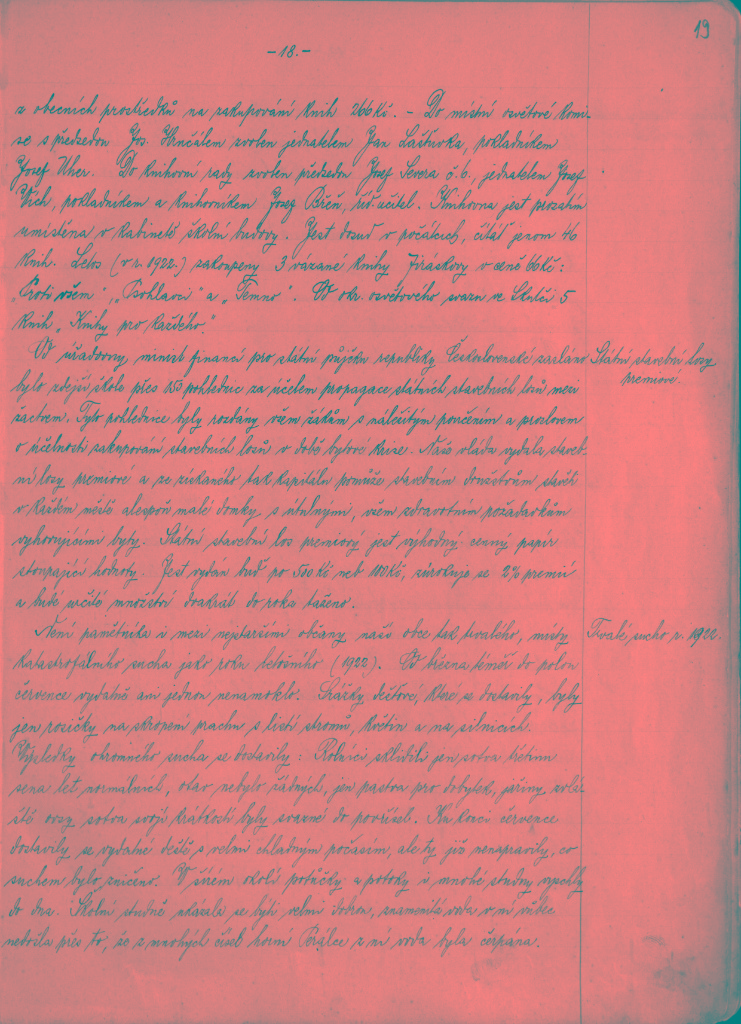 19
-18.-
z obecních prostředků na zakupování knih 266 Kč. - Do místní osvětové komi-
se s předsedou Jos. Hrnčálem zvolen jednatelem Jan Laštůvka, pokladníkem
Josef Uher. Do knihovní rady zvolen předsedou Josef Severa č. 6., jednatelem Josef
pokladníkem a knihovníkem Josef říd. učitel. Knihovna jest prozatím
umístěna v kabinetě školní budovy. Jest dosud v počátcích, čítáť jenom 46
knih. Letos (v r. 1922.) zakoupeny 3 vázané knihy Jiráskovy v ceně 66 Kč:
„Proti všem", „Psohlavci" a „Temno". Od okr. osvětového svazu ve Skutči 5
knih „Knihy pro každého."
Od úřadovny minist. financí pro státní půjčku republiky Československé zasláno
Státní stavební losy
premiové.
bylo zdejší škole přes 153 pohlednic za účelem propagace státních stavebních losů mezi
žactvem. Tyto pohlednice byly rozdány všem žákům s náležitým poučením a proslovem
o účelnosti zakupování stavebních losů v době bytové krise. Naše vláda vydala staveb-
ní losy premiové a ze získaného tak kapitálu pomůže stavebním družstvům stavěti
v každém městě alespoň malé domky s útulnými, všem zdravotním požadavkům
vyhovujícími byty. Státní stavební los premiový jest výhodný cenný papír
stoupající hodnoty. Jest vydán buď po 500 Kč neb 100 Kč, zúrokuje se 2% premií
a bude určité množství dvakrát do roka taženo.
Není pamětníka i mezi nejstaršími občany naší obce tak trvalého, místy
Trvalé sucho r. 1922.
katastrofálního sucha jako roku letošního (1922). Od března téměř do polou
července vydatně ani jednou nenamoklo. Srážky dešťové, které se dostavily, byly
jen rosičky na skropení prachu s listí stromů, květin a na silnicích.
Výsledky ohromného sucha se dostavily: Rolníci sklidili jen sotva třetinu
sena let normálních, otav nebylo žádných, jen pastva pro dobytek, jařiny, zvlá-
ště ovsy sotva svojí krátkostí byly svazné do povřísel. Ku konci července
dostavily se vydatné deště s velmi chladným počasím, ale ty již nenapravily, co
suchem bylo zničeno. V širém okolí potůčky a potoky i mnohé studny vyschly
do dna. Školní studně ukázala se býti velmi dobrou, znamenitá voda v ní vůbec
nedošla přes to, že z mnohých čísel horní Perálce z ní voda byla čerpána.